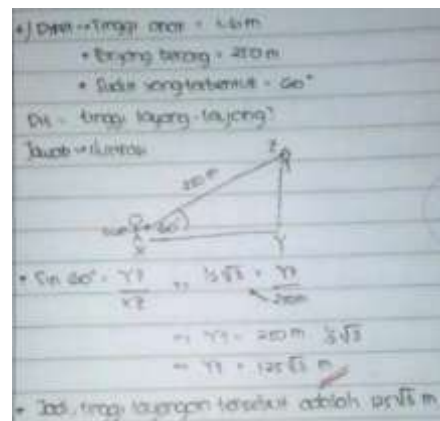 *) Diket → Tinggi anak = 1,60 m
• Panjang benang = 250 m
• Sudut yang terbentuk = 60°
Dit = tinggi layang-layang?
Jawab → ilustrasi
Z
250 m
60°
X
Y
• Sin 60° = YZ/XZ ⇒ ½√3 = YZ/250m
⇒ YZ = 250 m ½√3
⇒ YZ = 125√3 m
• Jadi, tinggi layangan tersebut adalah 125√3 m